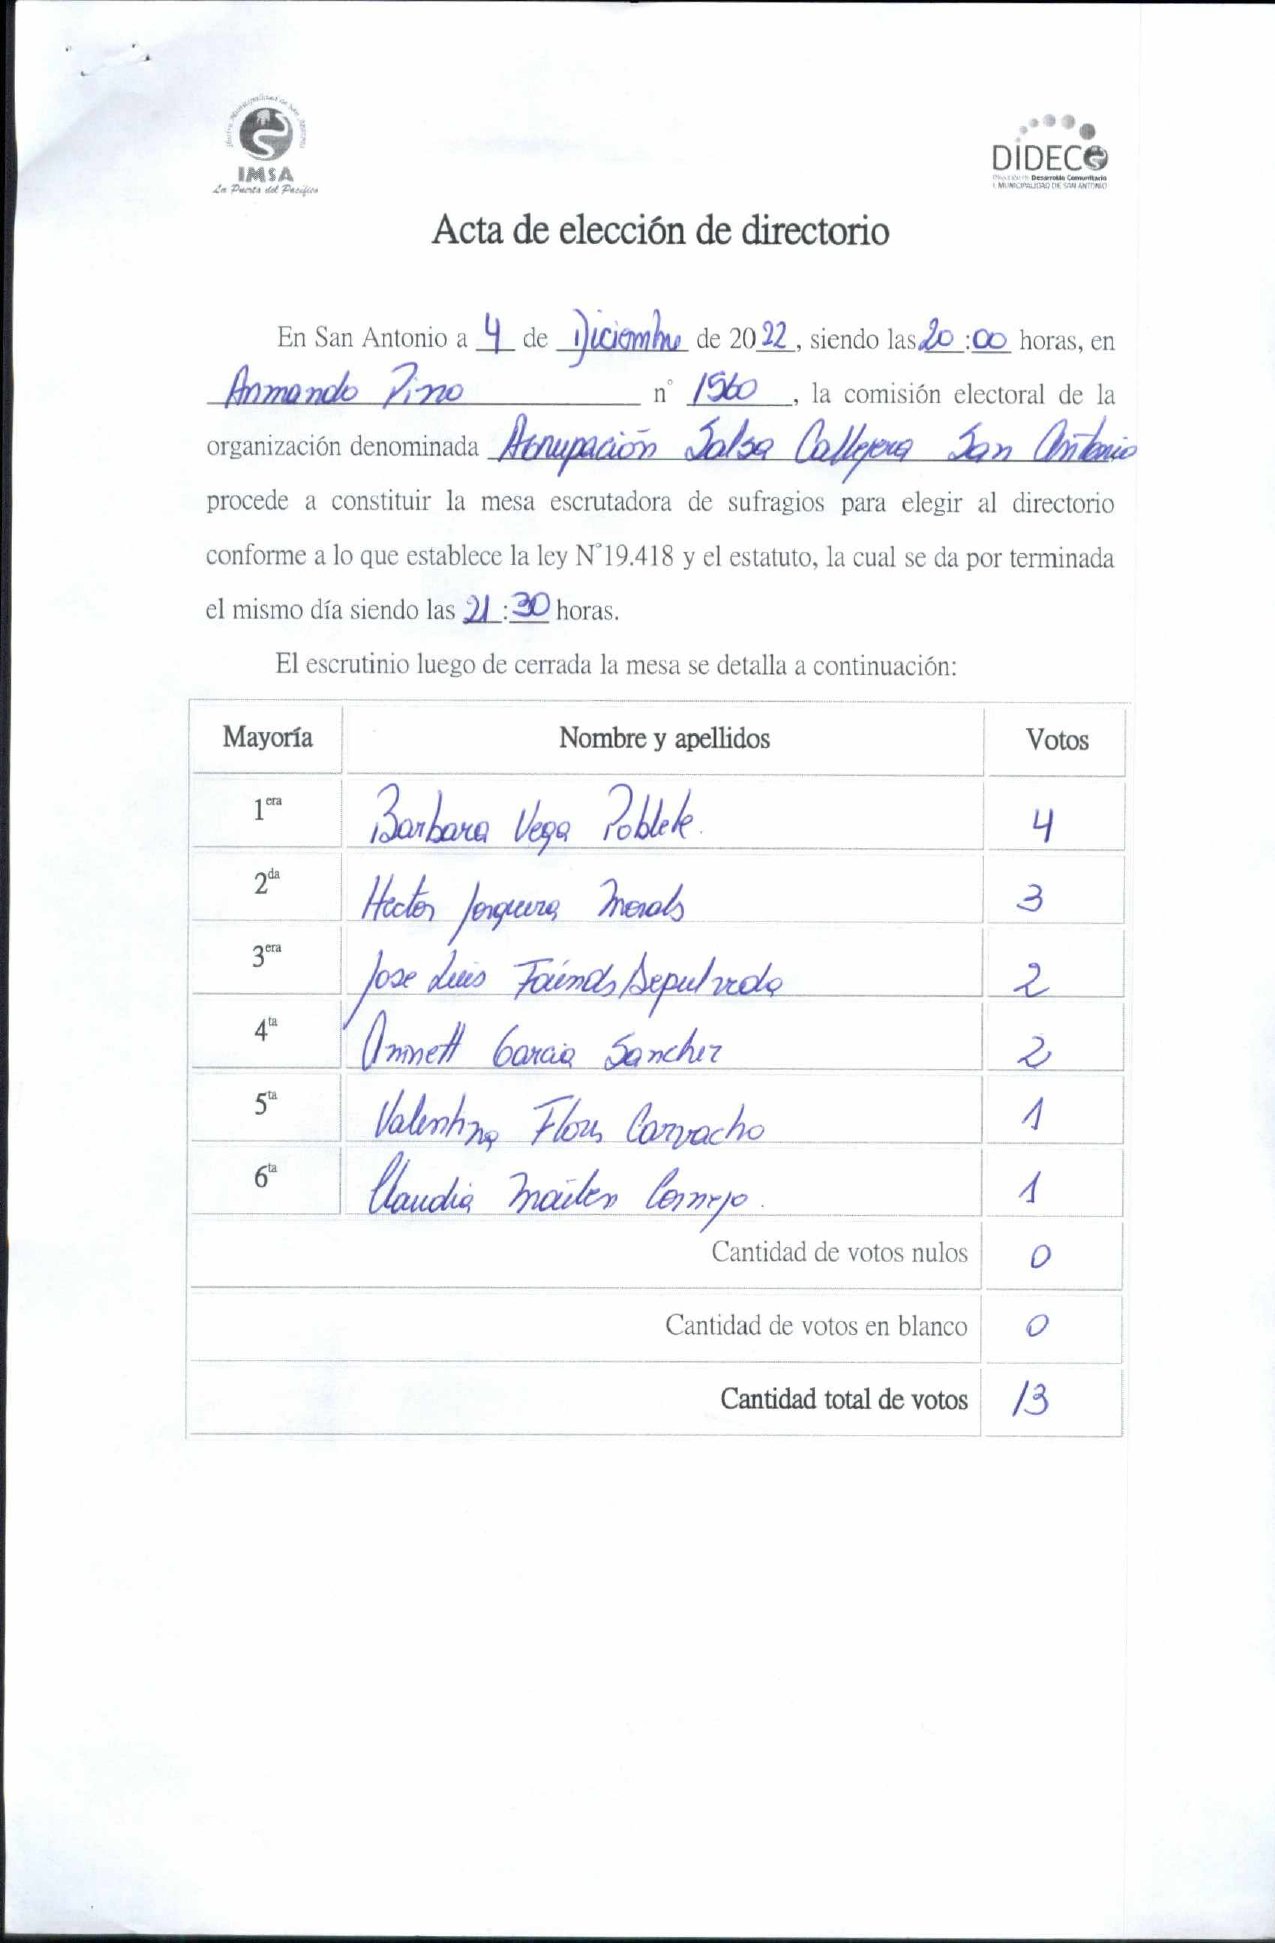 IMSA
La Puerta del Pacífico
DIDECO
Dirección de Desarrollo Comunitario
I. MUNICIPALIDAD DE SAN ANTONIO
Acta de elección de directorio
En San Antonio a 4 de Diciembre de 2022, siendo las 20:00 horas, en
Armando Pino n° 1560, la comisión electoral de la
organización denominada Agrupación Salsa Callejera San Antonio
procede a constituir la mesa escrutadora de sufragios para elegir al directorio
conforme a lo que establece la ley N°19.418 y el estatuto, la cual se da por terminada
el mismo día siendo las 21:30 horas.
El escrutinio luego de cerrada la mesa se detalla a continuación:
Mayoría Nombre y apellidos Votos
1era Barbara Vega Poblete. 4
2da Hector Jorquera Morales 3
3era Jose Luis Sepulveda 2
4ta Annett Garcia Sanchez 2
5ta Valentina Flores Carvacho 1
6ta Claudia Mailen Cornejo. 1
Cantidad de votos nulos 0
Cantidad de votos en blanco 0
Cantidad total de votos 13